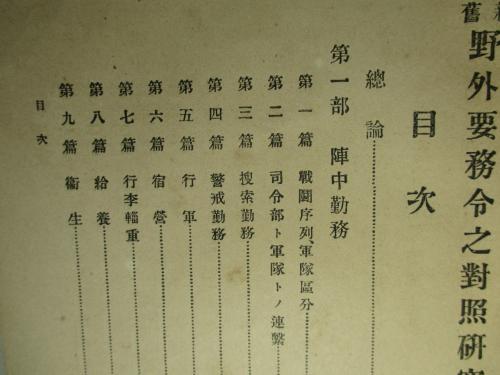 舊野外要務令之對照研
目次
總論
第一部 陣中勤務
第一篇 戰鬪序列、軍隊區分
第二篇 司令部ト軍隊トノ連繫
第三篇 搜索勤務
第四篇 警戒勤務
第五篇 行軍
第六篇 宿營
第七篇 行李輜重
第八篇 給養
第九篇 衞生
目次